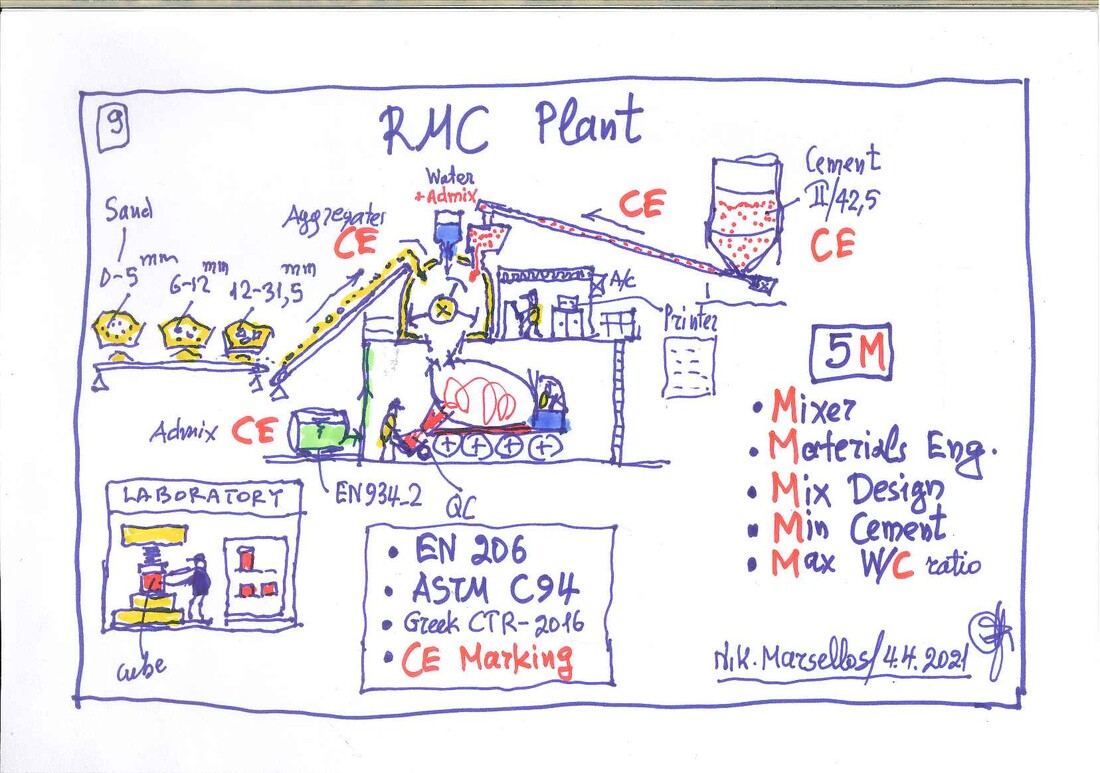 9
RMC Plant
Water
+Admix
Cement
II/42,5
CE
CE
Sand
Aggregates
CE
0-5 mm
6-12 mm
12-31,5 mm
A/c
Printer
5M
Admix CE
EN934-2
QC
• Mixer
• Materials Eng.
• Mix Design
• Min Cement
• Max W/C ratio
LABORATORY
cube
• EN 206
• ASTM C94
• Greek CTR-2016
• CE Marking
Nik. Marsellos/4.4.2021